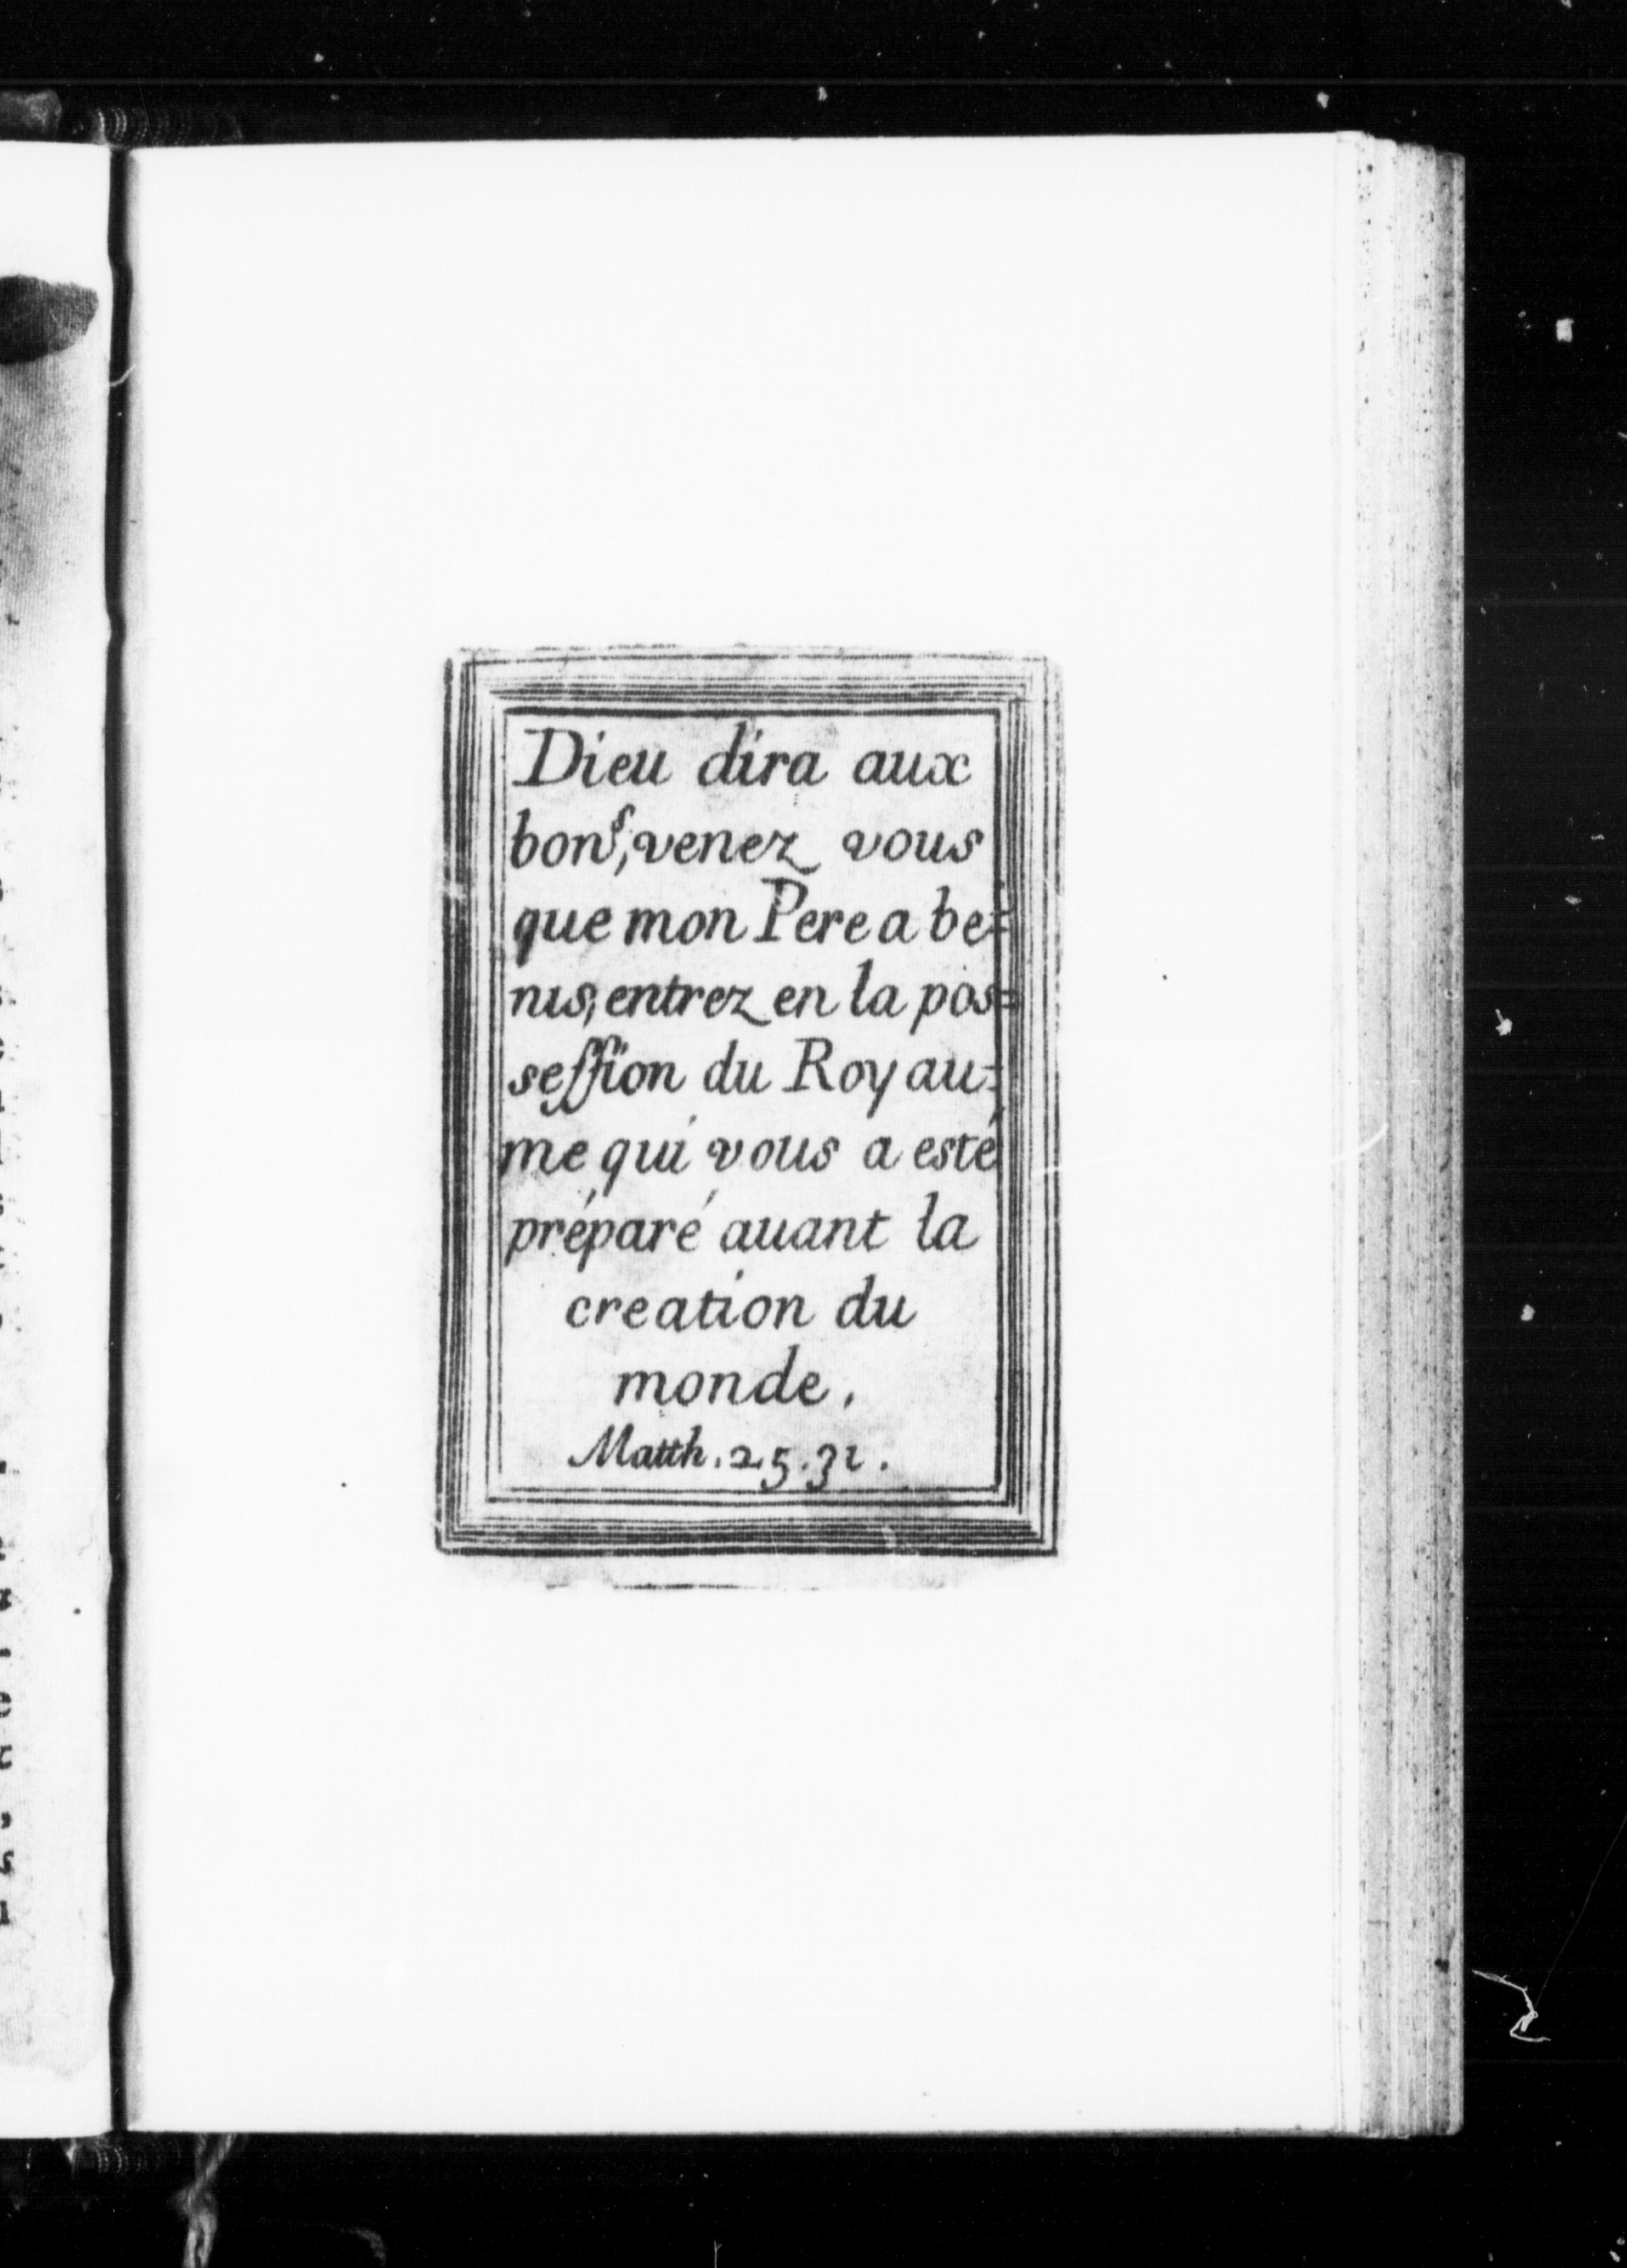 Dieu dira aux
bons, venez vous
que mon Pere a be=
nis, entrez en la pos=
seſſion du Royau=
me qui vous a esté
préparé auant la
creation du
monde.
Matth. 25. 31.